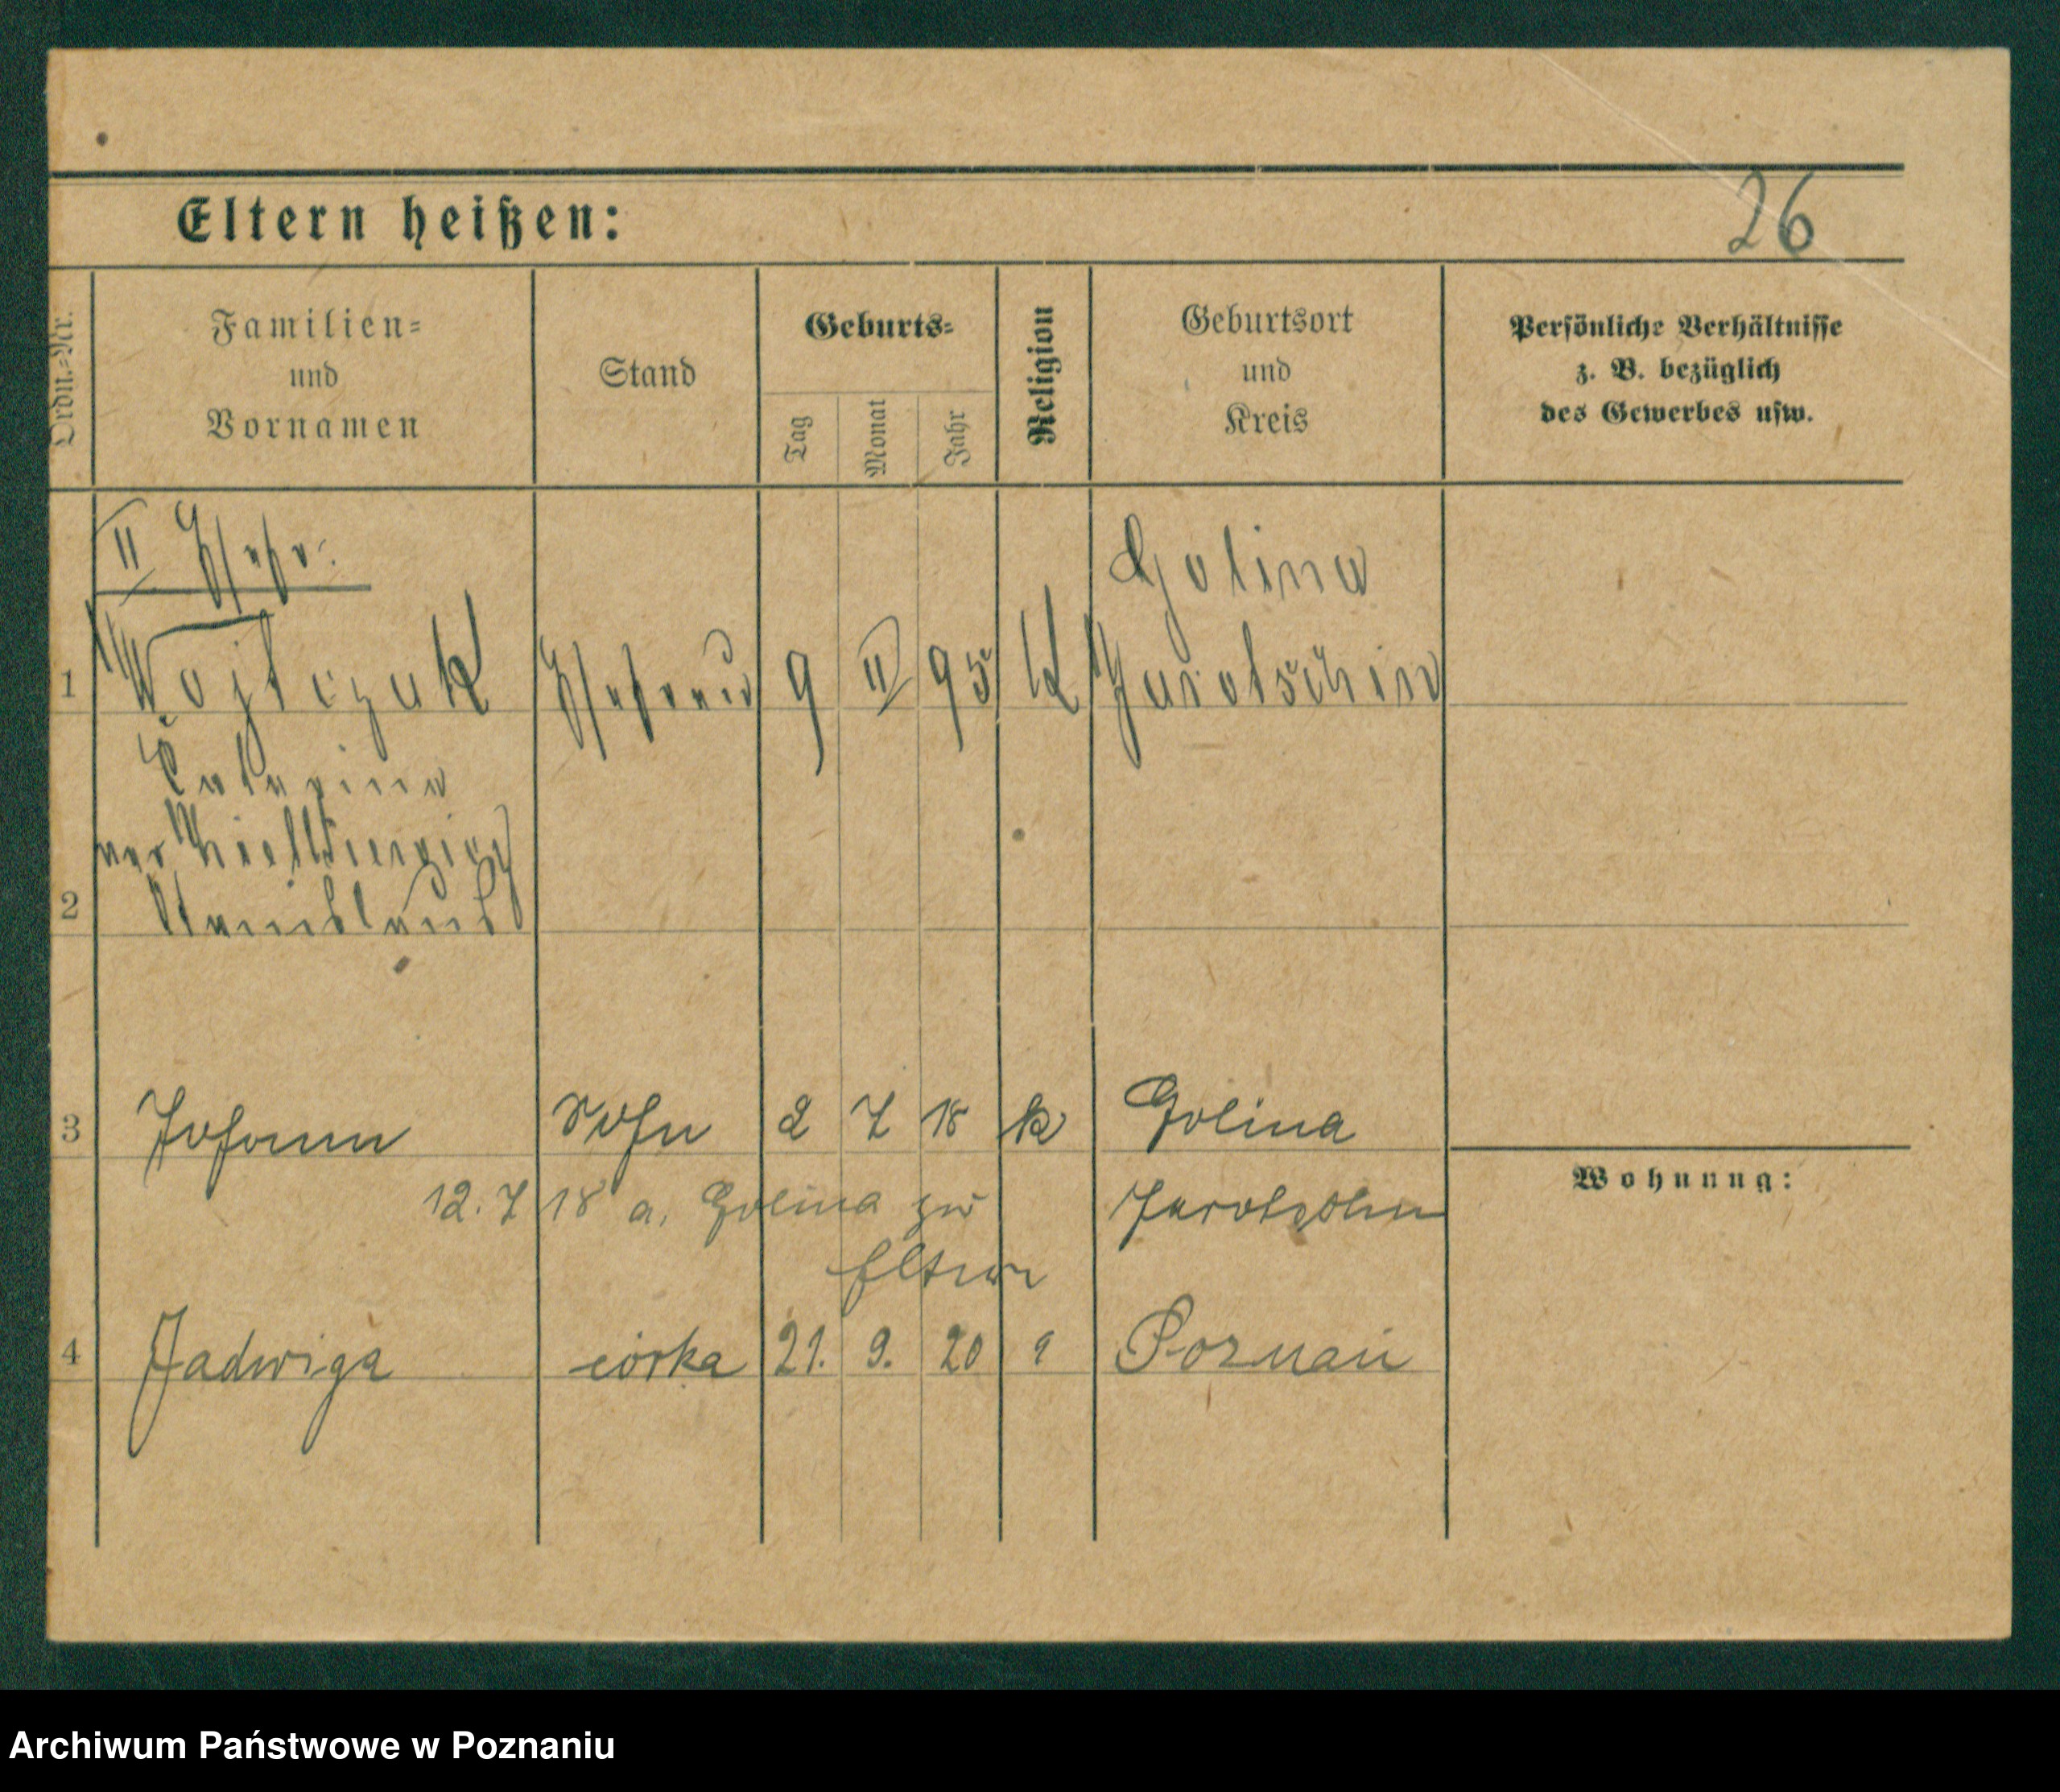 26
Eltern heißen:
Ordn.-Nr.
Familien-
und
Vornamen
Stand
Geburts-
Tag
Monat
Jahr
Religion
Geburtsort
und
Kreis
Persönliche Verhältnisse
z. B. bezüglich
des Gewerbes usw.
II Ehefr:
Golina
1 Wojtczak Ehefrau 9 II 95 K Jarotschin
Katarina
2
3 Johann Sohn 2 7 18 k Golina
Wohnung:
12.7 18 a. Golina zu Jarotschin
Eltern
4 Jadwiga córka 21. 9. 20 Poznań
Archiwum Państwowe w Poznaniu